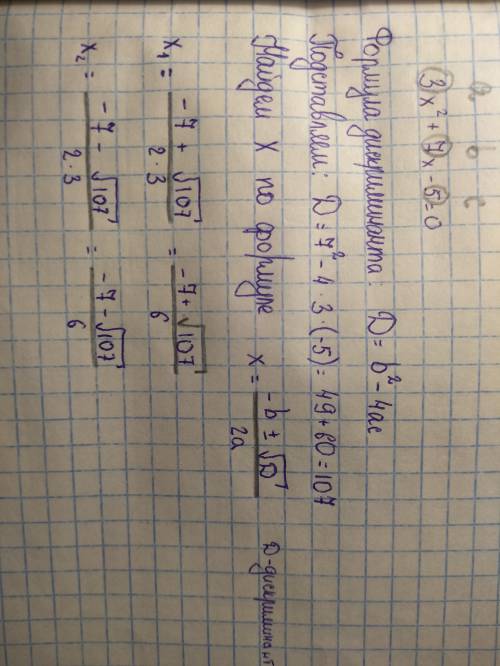 a b c
3x² + 7x - 5 = 0
Формула дискриминанта: D = b² - 4ac
Подставляем: D = 7² - 4 · 3 · (-5) = 49 + 60 = 107
Найдем X по формуле x = (-b ± √D) / 2a D - дискриминант
x₁ = (-7 + √107) / (2 · 3) = (-7 + √107) / 6
x₂ = (-7 - √107) / (2 · 3) = (-7 - √107) / 6